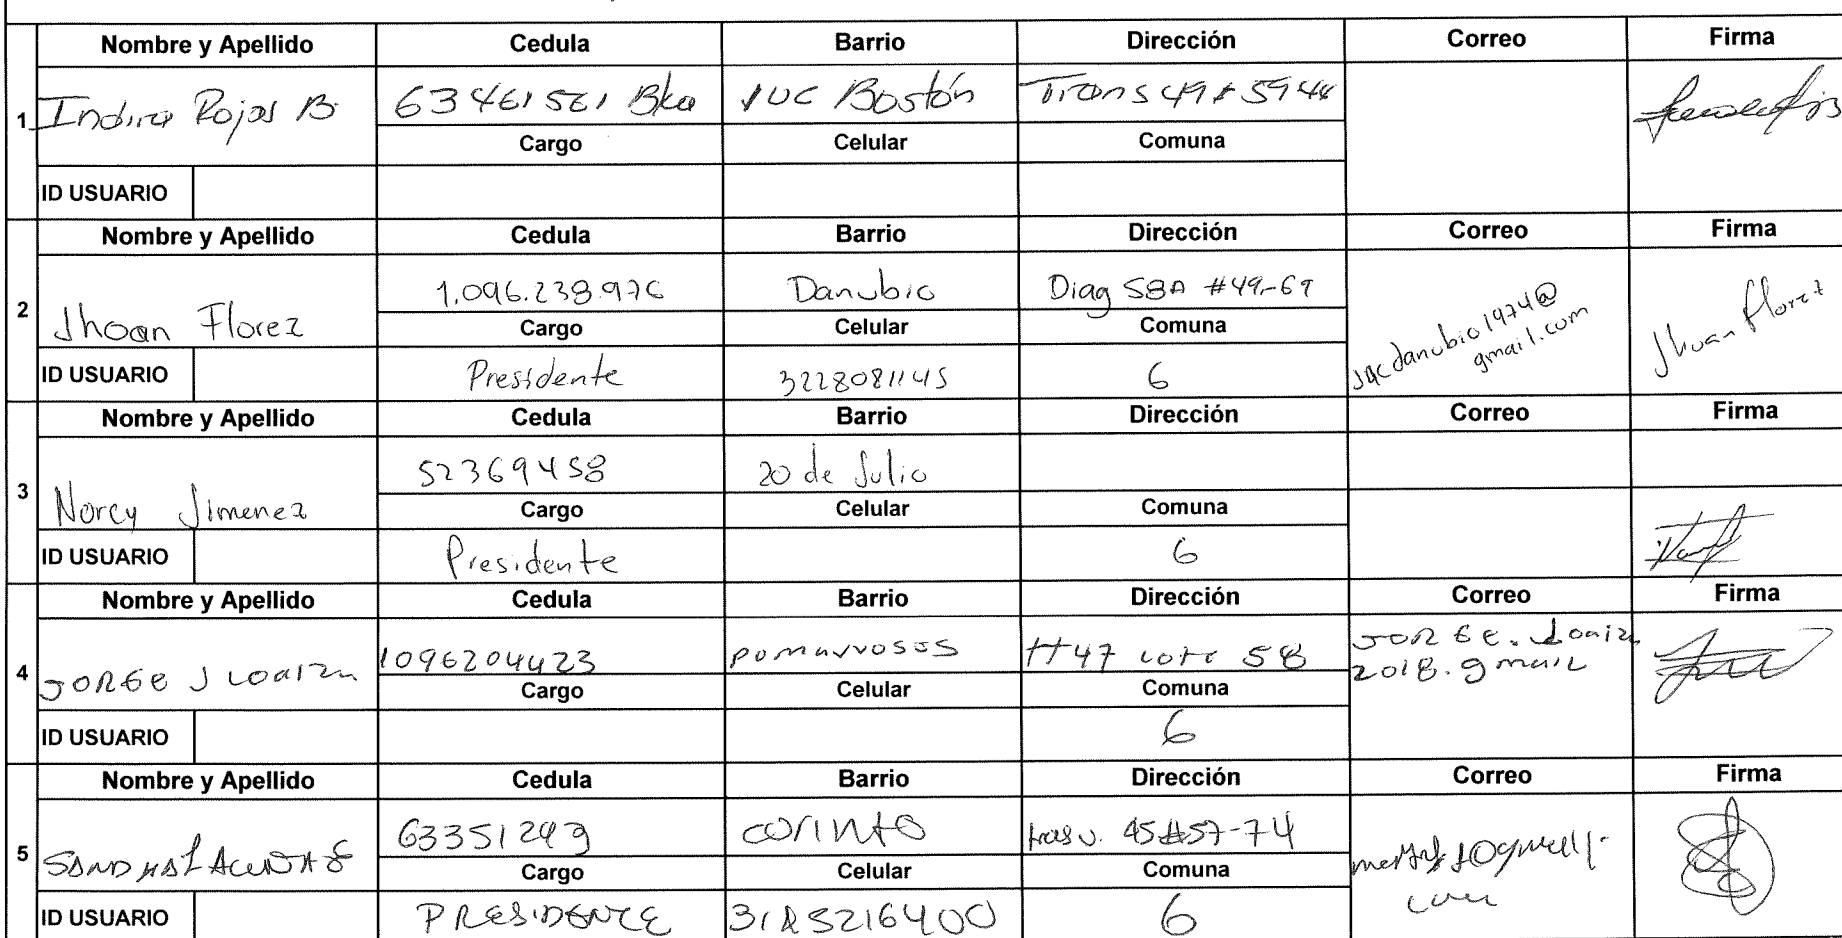 Nombre y Apellido Cedula Barrio Dirección Correo Firma
1 Indira Rojas B. 63461561 Bka Bostón Trans 49 # 5944
Cargo Celular Comuna
ID USUARIO
Nombre y Apellido Cedula Barrio Dirección Correo Firma
2 Jhoan Florez 1.096.238.976 Danubio Diag 58A #49-69 jacdanubio1974@ gmail.com Jhoan Florez
Cargo Celular Comuna
ID USUARIO Presidente 3228081145 6
Nombre y Apellido Cedula Barrio Dirección Correo Firma
3 Norcy Jimenez 52369458 20 de Julio
Cargo Celular Comuna
ID USUARIO Presidente 6
Nombre y Apellido Cedula Barrio Dirección Correo Firma
4 JORGE J LOAIZA 1096204423 pomarrosos #47 lote 58 JORGE.Loaiza 2018.gmail
Cargo Celular Comuna
ID USUARIO 6
Nombre y Apellido Cedula Barrio Dirección Correo Firma
5 63351249 corinto trasv. 45#57-74
Cargo Celular Comuna
ID USUARIO PRESIDENTE 6